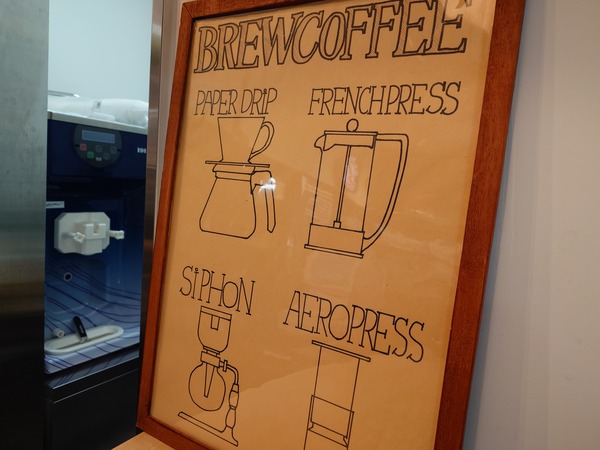 BREWCOFFEE
PAPER DRIP
FRENCHPRESS
SiPHON
AEROPRESS